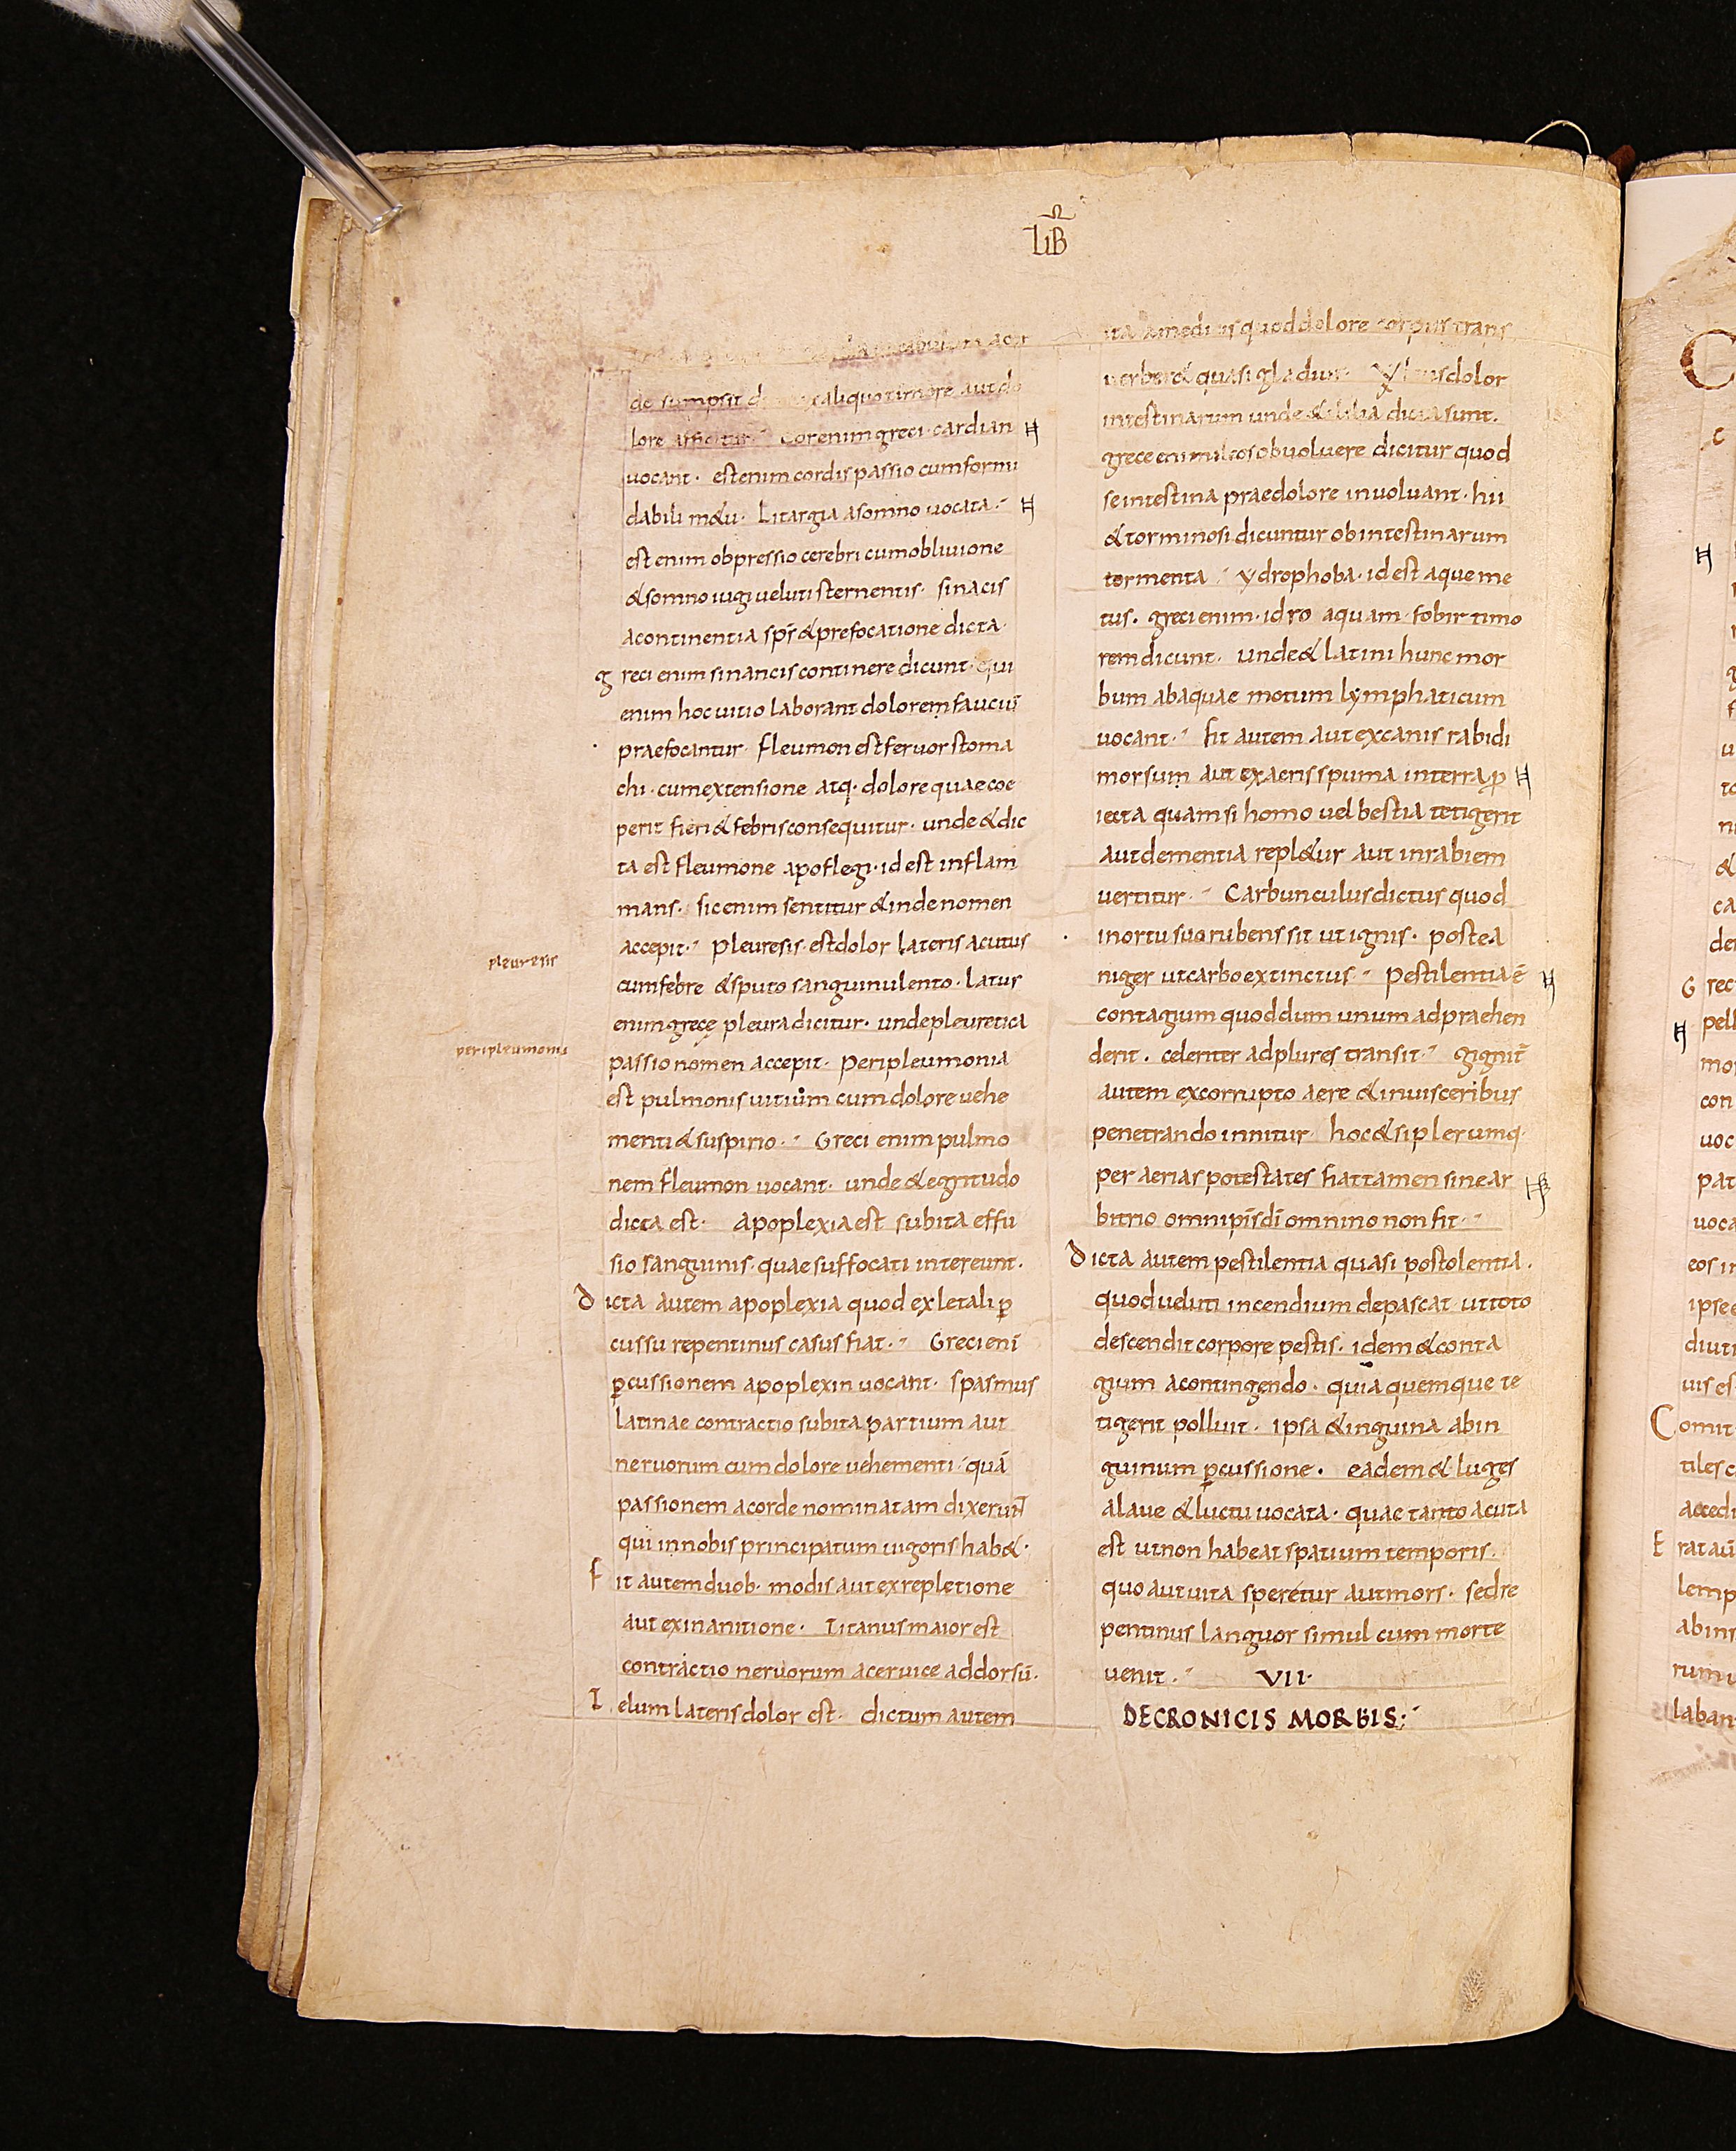 LIB
uocabulum a cor
de sumpsit aliquo timore aut do
lore afficitur. Cor enim greci cardian
uocant. est enim cordis passio cum formi
dabili m&u. Litargia a somno uocata.
est enim obpressio cerebri cum obliuione
& somno iugi ueluti sternentis. sinacis
a continentia sp̄s & prefocatione dicta.
greci enim sinancis continere dicunt. qui
enim hoc uitio laborant dolorem fauciū
praefocantur. fleumon est feruor stoma
chi. cum extensione atq. dolore quae coe
perit fieri & febris consequitur. unde & dic
ta est fleumone apoflegi. id est inflam
mans. sic enim sentitur & inde nomen
accepit. pleuresis. est dolor lateris acutus
pleuresis
cum febre & sputo sanguinulento. latus
enim grecę pleura dicitur. unde pleuretica
peripleumonia
passio nomen accepit. peripleumonia
est pulmonis uitium cum dolore uehe
menti & suspirio. Greci enim pulmo
nem fleumon uocant. unde & egritudo
dicta est. apoplexia est subita effu
sio sanguinis. quae suffocati intereunt.
dicta autem apoplexia quod ex letali ꝑ
cussu repentinus casus fiat. Greci enī
ꝑcussionem apoplexin uocant. spasmus
latinae contractio subita partium aut
neruorum cum dolore uehementi. quā
passionem a corde nominatam dixerunt
qui in nobis principatum uigoris hab&.
fit autem duob. modis aut ex repletione
aut ex inanitione. Titanus maior est
contractio neruorum a ceruice ad dorsū.
Telum lateris dolor est. dictum autem
ita a medicis quod dolore corpus trans
uerber& quasi gladius. Yleus dolor
intestinarum unde & ililia dicta sunt.
grece enim ilcos obuoluere dicitur quod
se intestina prae dolore inuoluant. hii
& torminosi dicuntur ob intestinarum
tormenta. ydrophoba. id est aque me
tus. greci enim. idro aquam. fobir timo
rem dicunt. unde & latini hunc mor
bum ab aquae motum lymphaticum
uocant. fit autem aut ex canis rabidi
morsum aut ex aeris spuma in terra ꝑ
iecta quam si homo uel bestia tetigerit
aut dementia repl&ur aut in rabiem
uertitur. Carbunculus dictus quod
in ortu suo rubens sit ut ignis. postea
niger ut carbo extinctus. pestilentia ē
contagium quod dum unum adpraehen
derit. celeriter ad plures transit. gignit̄
autem ex corrupto aere & in uisceribus
penetrando innitur hoc & si plerumq.
per aerias potestates fiat tamen sine ar
bitrio omnipīs dī omnino non fit.
dicta autem pestilentia quasi postolentia.
quod ueluti incendium depascat. ut toto
descendit corpore pestis. idem & conta
gium a contingendo. quia quemque te
tigerit polluit. ipsa & inguina ab in
guinum ꝑcussione. eadem & luges
a laue & luctu uocata. quae tanto acuta
est ut non habeat spatium temporis.
quo aut uita speretur aut mors. sed re
pentinus languor simul cum morte
uenit. VII.
DE CRONICIS MORBIS: